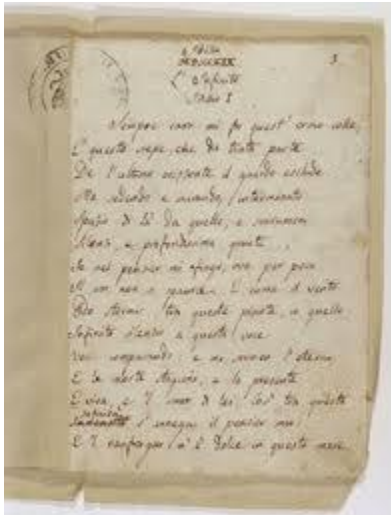 Idillio
MDCCCXIX
3
L'Infinito
Idillio I
Sempre caro mi fu quest' ermo colle,
E questa siepe, che da tanta parte
De l'ultimo orizzonte il guardo esclude.
Ma sedendo e mirando, interminato
Spazio di là da quella, e sovrumani
Silenzi, e profondissima quiete
Io nel pensier mi fingo, ove per poco
Il cor non si spaura. E come il vento
Odo stormir tra queste piante, io quello
Infinito silenzio a questa voce
Vo comparando: e mi sovvien l'eterno,
E le morte stagioni, e la presente
E viva, e 'l suon di lei. Così tra questa
Immensità s'annega il pensier mio:
E 'l naufragar m'è dolce in questo mare.